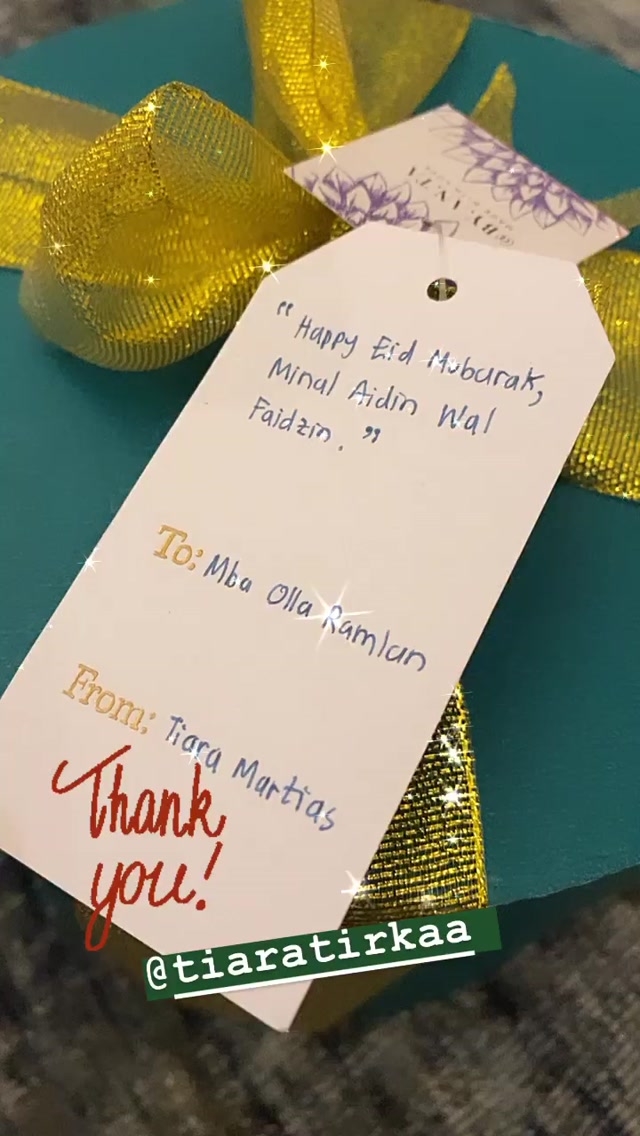 @BY.VAZA
"Happy Eid Mubarak,
Minal Aidin Wal
Faidzin."
To: Mba Olla Ramlan
From: Tiara Martias
Thank
you!
@tiaratirkaa